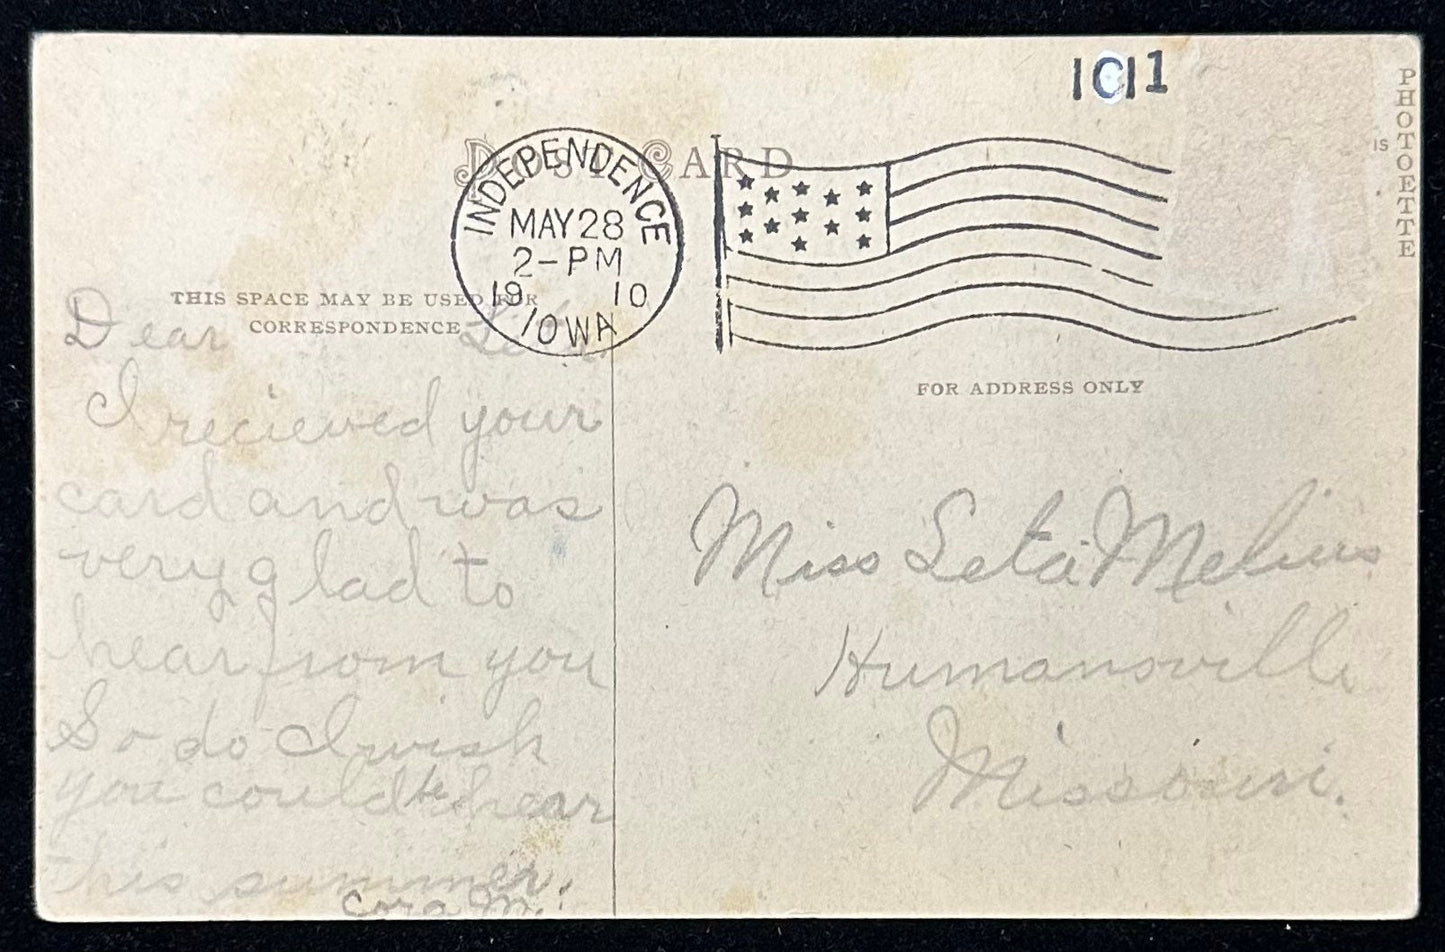 1C11
PHOTOETTE
IS
POST CARD
INDEPENDENCE
MAY 28
2-PM
19 10
IOWA
THIS SPACE MAY BE USED FOR
CORRESPONDENCE
FOR ADDRESS ONLY
Dear
I recieved your
card and was
very glad to
hear from you
So do I wish
you could be hear
this summer.
Cora M.
Miss Leta Melius
Humansville
Missouri.